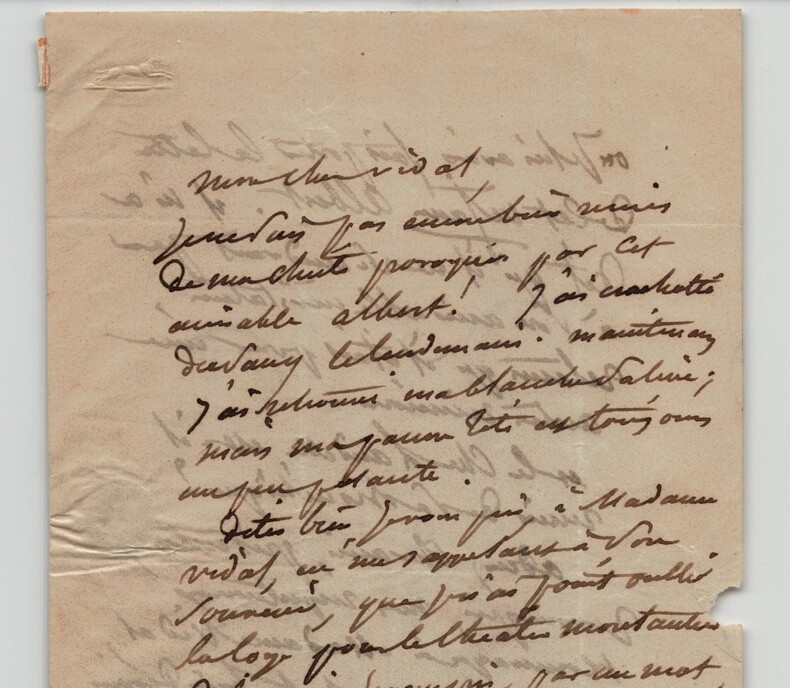 mon cher vidal,
Je ne suis pas encore bien remis
de ma chute provoquée par cet
aimable albert! J'ai crachotté
du sang le lendemain. maintenant
J'ai retrouvé ma blanche salive;
mais ma pauvre tête est toujours
un peu pesante.
dites bien je vous prie, à Madame
vidal, en me rappelant à son
souvenir, que je n'ai point oublié
la loge pour le théâtre montansier
par un mot,